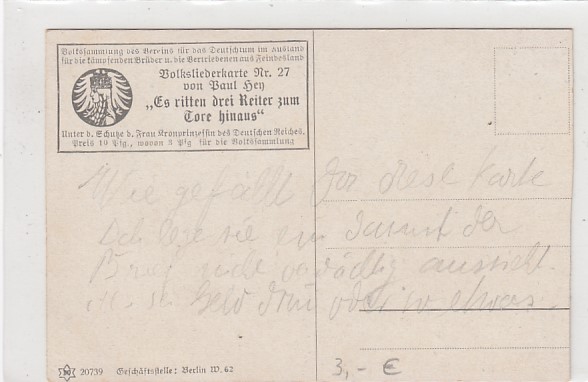 Volkssammlung des Vereins für das Deutschtum im Ausland
für die kämpfenden Brüder u. die Vertriebenen aus Feindesland
Volksliederkarte Nr. 27
von Paul Hey
„Es ritten drei Reiter zum
Tore hinaus"
Unter d. Schutze d. Frau Kronprinzessin des Deutschen Reiches.
Preis 10 Pfg., wovon 3 Pfg für die Volkssammlung
Wie gefällt Dir diese Karte
Ich lege sie ein damit der
Brief nicht aussieht.
Geld drin oder so etwas.
3,- €
20739 Geschäftsstelle: Berlin W. 62